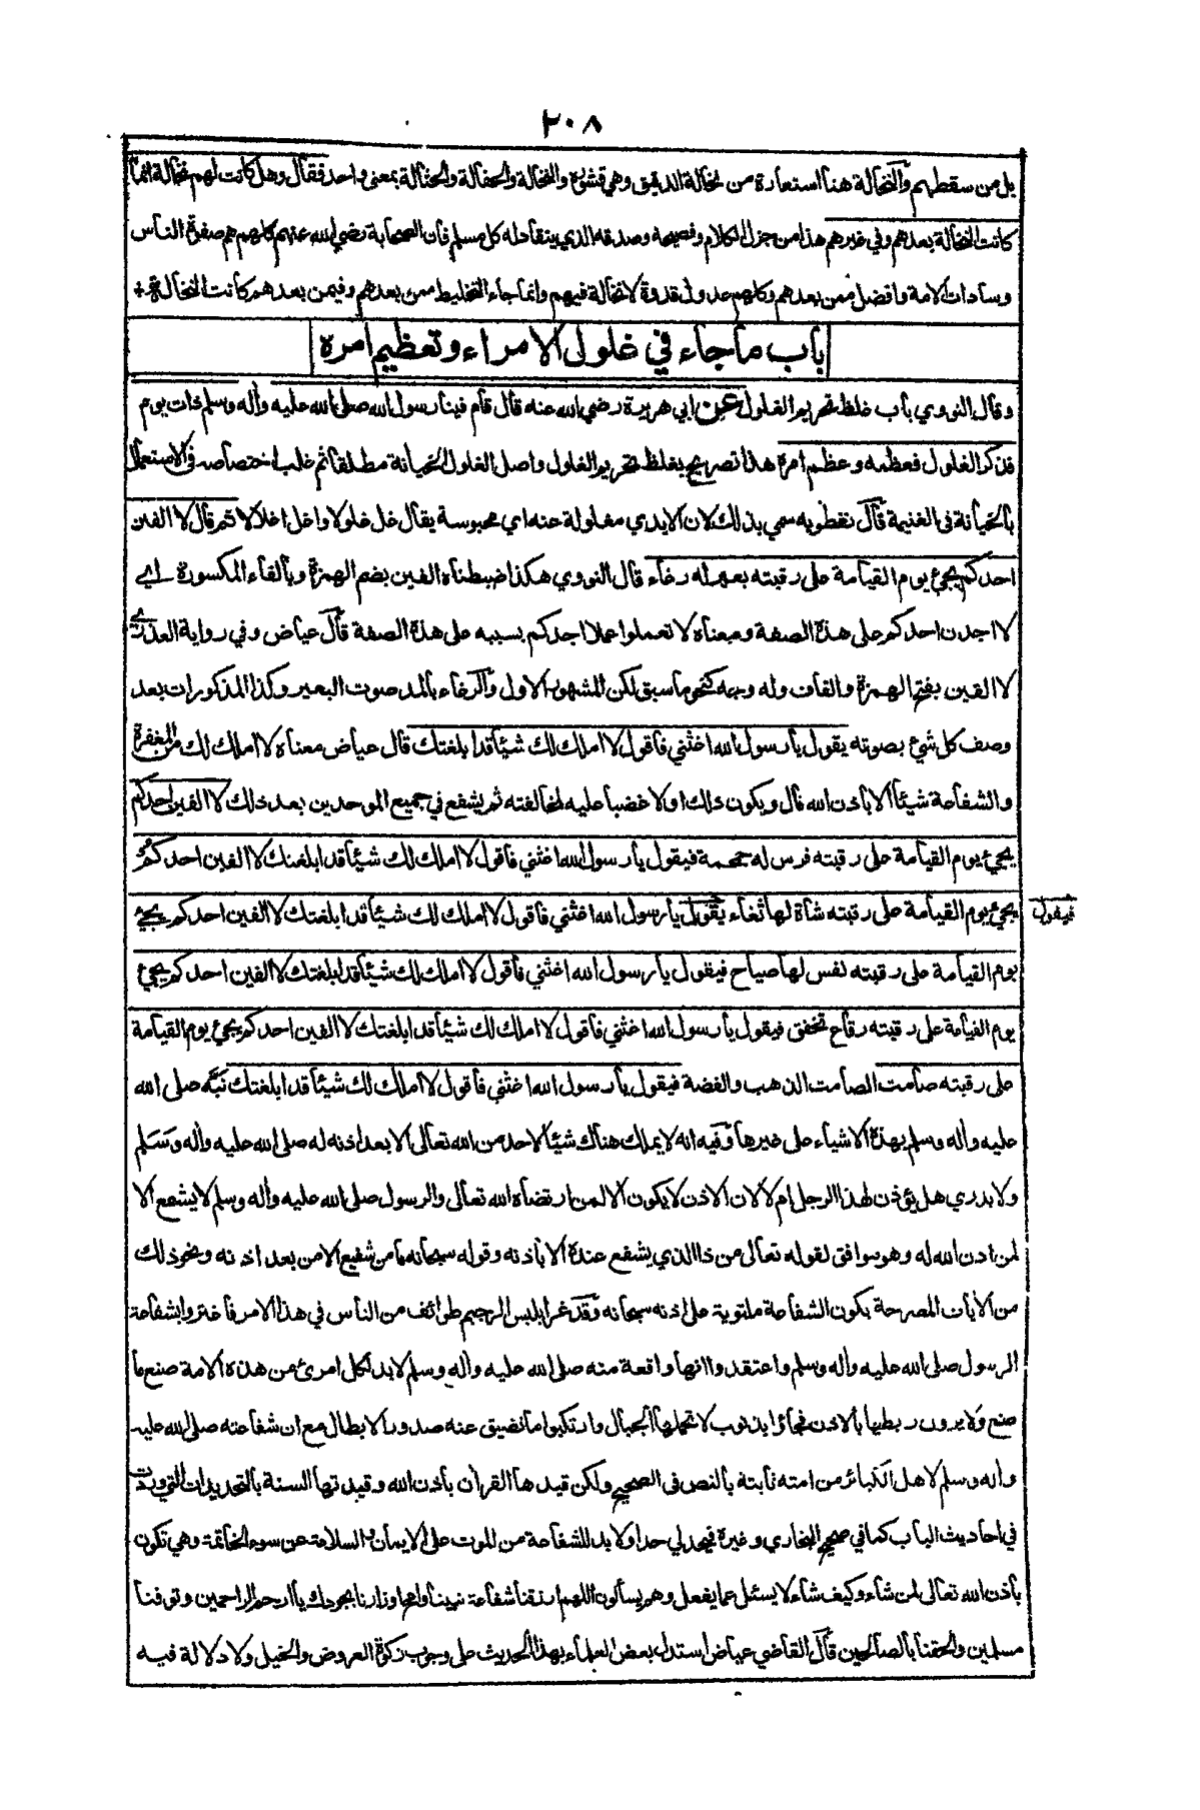 ٢٠٨
بل من سقطهم والنخالة هنا استعارة من نخالة الدقيق وهي قشوره والنخالة والحفالة والحثالة بمعنى واحد فقال وهل كانت لهم نخالة انما
كانت النخالة بعدهم وفي غيرهم هذا من جزل الكلام وفصيحه وصدقه الذي ينقاد له كل مسلم فان الصحابة رضي الله عنهم كلهم هم صفوة الناس
وسادات الامة وافضل ممن بعدهم وكلهم عدول قدوة لا نخالة فيهم وانما جاء التخليط ممن بعدهم وفيمن بعدهم كانت النخالة
باب ماجاء في غلول الامراء وتعظيم امره
وقال النووي باب غلظ تحريم الغلول عن ابي هريرة رضي الله عنه قال قام فينا رسول الله صلى الله عليه وأله وسلم ذات يوم
فذكر الغلول فعظمه وعظم امره هذا تصريح بغلظ تحريم الغلول واصل الغلول الخيانة مطلقا ثم غلب اختصاصه في الاستعمال
بالخيانة في الغنيمة قال نفطويه سمي بذلك لان الايدي مغلولة عنه اي محبوسة يقال غل غلولا واغل اغلالا ثم قال لا الفين
احدكم يجيء يوم القيامة على رقبته بعير له رغاء قال النووي هكذا ضبطناه الفين بضم الهمزة وبالفاء المكسورة اي
لا اجدن احدكم على هذه الصفة ومعناه لا تعملوا عملا اجدكم بسببه على هذه الصفة قال عياض وفي رواية العذري
لا القين بفتح الهمزة والقاف وله وجه كنحو ما سبق لكن المشهور الاول والرغاء بالمد صوت البعير وكذا المذكورات بعد
وصف كل شيء بصوته يقول يا رسول الله اغثني فاقول لا املك لك شيئا قد ابلغتك قال عياض معناه لا املك لك من المغفرة
والشفاعة شيئا الا باذن الله قال ويكون ذلك اولا غضبا عليه لمخالفته ثم يشفع في جميع الموحدين بعد ذلك لا الفين احدكم
يجيء يوم القيامة على رقبته فرس له حمحمة فيقول يا رسول الله اغثني فاقول لا املك لك شيئا قد ابلغتك لا الفين احدكم
يجيء يوم القيامة على رقبته شاة لها ثغاء يقول يا رسول الله اغثني فاقول لا املك لك شيئا قد ابلغتك لا الفين احدكم يجيء
فيقول
يوم القيامة على رقبته نفس لها صياح فيقول يا رسول الله اغثني فاقول لا املك لك شيئا قد ابلغتك لا الفين احدكم يجيء
يوم القيامة على رقبته رقاع تخفق فيقول يا رسول الله اغثني فاقول لا املك لك شيئا قد ابلغتك لا الفين احدكم يجيء يوم القيامة
على رقبته صامت الصامت الذهب والفضة فيقول يا رسول الله اغثني فاقول لا املك لك شيئا قد ابلغتك نبه صلى الله
عليه وأله وسلم بهذه الاشياء على غيرها وفيه انه لا يملك هناك شيئا لاحد من الله تعالى الا بعد اذنه له صلى الله عليه وأله وسلم
ولا يدري هل يؤذن لهذا الرجل ام لا لان الاذن لا يكون الا لمن ارتضاه الله تعالى والرسول صلى الله عليه وأله وسلم لا يشفع الا
لمن اذن الله له وهو موافق لقوله تعالى من ذا الذي يشفع عنده الا باذنه وقوله سبحانه ما من شفيع الا من بعد اذنه ونحو ذلك
من الأيات المصرحة بكون الشفاعة ملتوية على اذنه سبحانه وقد غر ابليس الرجيم طوائف من الناس في هذا الامر فاغتروا بشفاعة
الرسول صلى الله عليه وأله وسلم واعتقدوا انها واقعة منه صلى الله عليه وأله وسلم لا بد لكل امرئ من هذه الامة صنع ما
صنع ولا يرون ربطها بالاذن فجاؤا بذنوب لا تحملها الجبال وارتكبوا ما تضيق عنه صدور الابطال مع ان شفاعته صلى الله عليه
وأله وسلم لاهل الكبائر من امته ثابتة بالنص في الصحيح ولكن قيدها القرأن باذن الله وقيدتها السنة بالتحديدات التي وردت
في احاديث الباب كما في صحيح البخاري وغيره فيحد لي حدا ولا بد للشفاعة من الموت على الايمان والسلامة عن سوء الخاتمة وهي تكون
باذن الله تعالى لمن شاء وكيف شاء لا يسئل عما يفعل وهم يسألون اللهم ارزقنا شفاعة نبينا وامح اوزارنا بجودك يا ارحم الراحمين وتوفنا
مسلمين والحقنا بالصالحين قال القاضي عياض استدل بعض العلماء بهذا الحديث على وجوب زكوة العروض والخيل ولا دلالة فيه